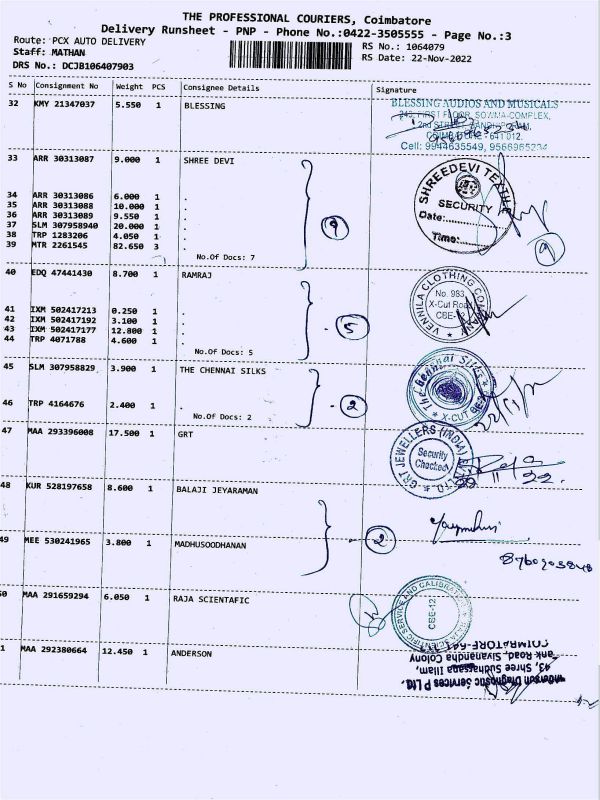 THE PROFESSIONAL COURIERS, Coimbatore
Delivery Runsheet - PNP - Phone No.:0422-3505555 - Page No.:3
Route: PCX AUTO DELIVERY
Staff: MATHAN
DRS No.: DCJB106407903
RS No.: 1064079
RS Date: 22-Nov-2022
S No Consignment No Weight PCS Consignee Details Signature
32 KMY 21347037 5.550 1 BLESSING
BLESSING AUDIOS AND MUSICALS
FIRST FLOOR, SOWMA-COMPLEX,
2nd
Cell: 9944635549, 9566965234
33 ARR 30313087 9.000 1 SHREE DEVI
34 ARR 30313086 6.000 1 .
35 ARR 30313088 10.000 1 .
36 ARR 30313089 9.550 1 .
37 SLM 307958940 20.000 1 .
38 TRP 1283206 4.050 1 .
39 MTR 2261545 82.650 3 .
No.Of Docs: 7
SHREEDEVI TEXTILE
SECURITY
Date:
Time:
40 EDQ 47441430 8.700 1 RAMRAJ
41 IXM 502417213 0.250 1 .
42 IXM 502417192 3.100 1 .
43 IXM 502417177 12.800 1 .
44 TRP 4071788 4.600 1 .
No.Of Docs: 5
5
VENNILA CLOTHING COMPANY
No. 983,
X-Cut Road
45 SLM 307958829 3.900 1 THE CHENNAI SILKS
46 TRP 4164676 2.400 1 .
No.Of Docs: 2
2
The Chennai Silks
X-CUT
47 MAA 293396008 17.500 1 GRT
GRT JEWELLERS (INDIA)
Security
Checked
48 KUR 528197658 8.600 1 BALAJI JEYARAMAN
49 MEE 530241965 3.800 1 MADHUSOODHANAN
2
50 MAA 291659294 6.050 1 RAJA SCIENTAFIC
SERVICE AND CALIBRATION
CBE-12
1 MAA 292380664 12.450 1 ANDERSON
Anderson Diagnostic Services P Ltd.
43, Shree Sudharsana Illam,
Tank Road, Sivanandha Colony